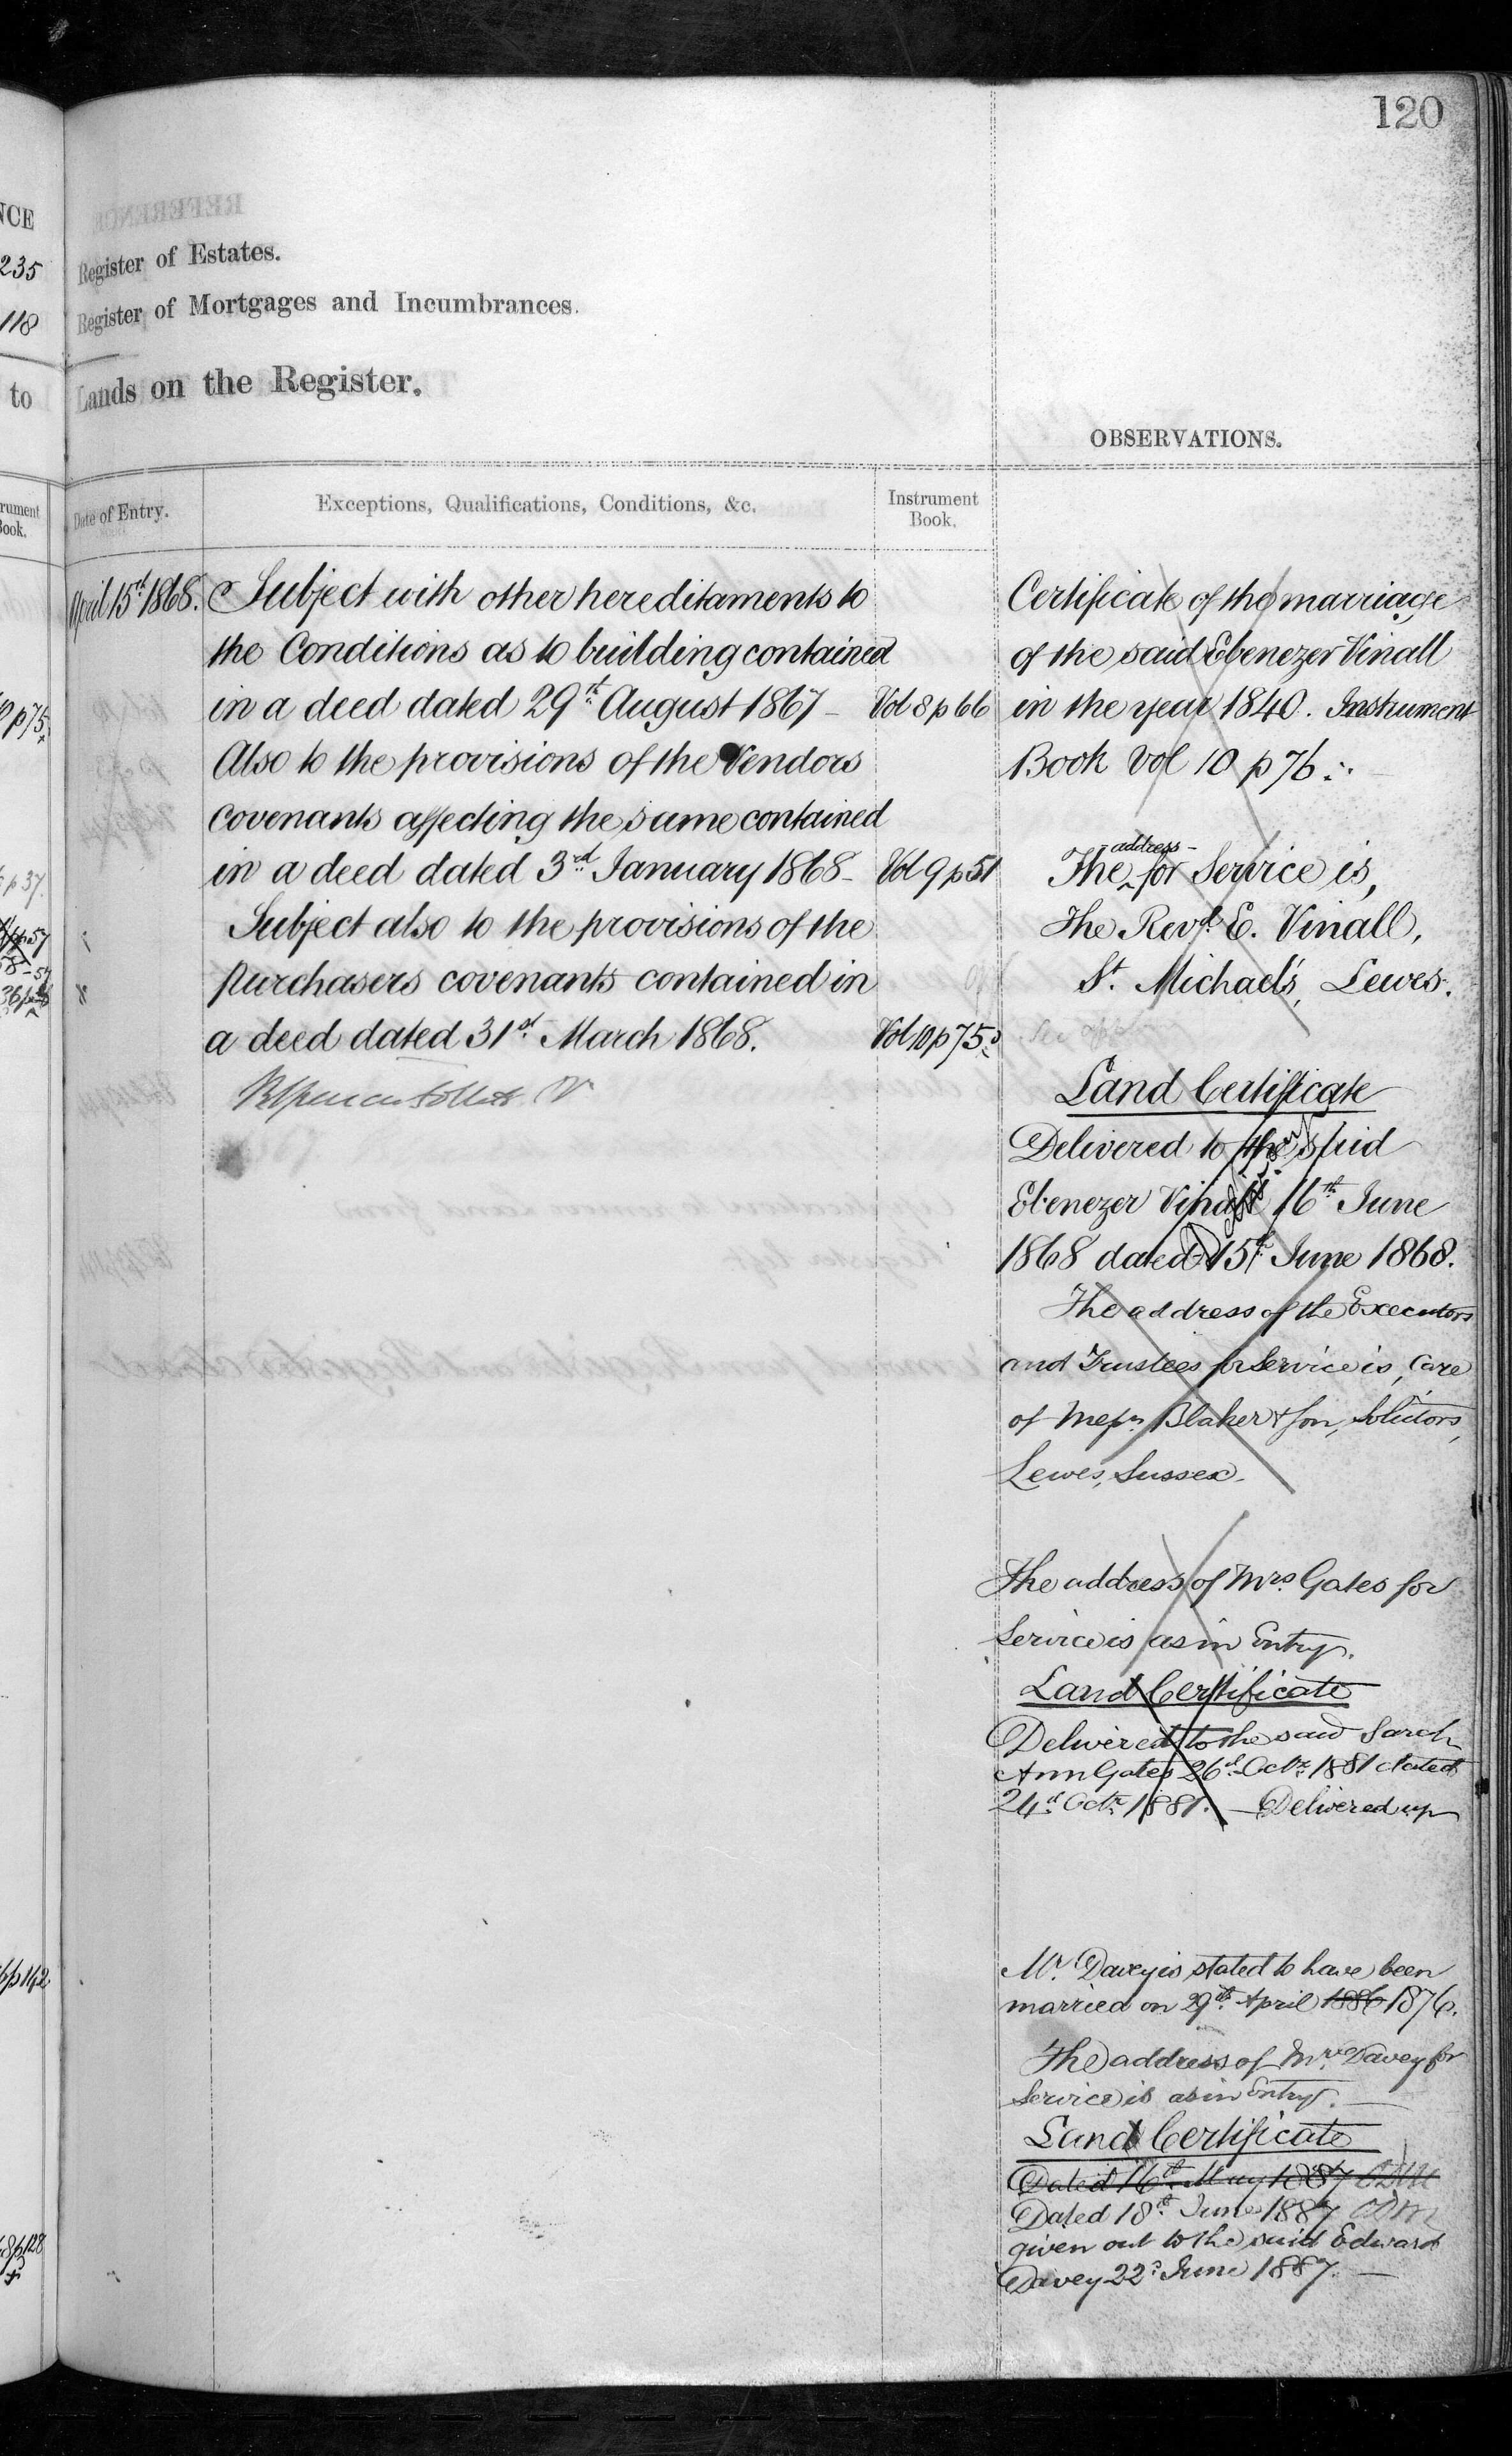 120
NCE
235
118
to
Register of Estates.
Register of Mortgages and Incumbrances.
Lands on the Register.
OBSERVATIONS.
Date of Entry.
Exceptions, Qualifications, Conditions, &c.
Instrument
Book.
April 15th 1868.
Subject with other hereditaments to
the Conditions as to building contained
in a deed dated 29th August 1867 – Vol 8 p 66
Also to the provisions of the Vendors
covenants affecting the same contained
in a deed dated 3rd January 1868 – Vol 9 p 51
Subject also to the provisions of the
purchasers covenants contained in
a deed dated 31st March 1868. Vol 10 p 75
Certificate of the marriage
of the said Ebenezer Vinall
in the year 1840. Instrument
Book Vol 10 p 76
The address for Service is,
The Revd. E. Vinall,
St. Michael's, Lewes.
Land Certificate
Delivered to the said
Ebenezer Vinall 16th June
1868 dated 15th June 1868.
The address of the Executors
and Trustees for Service is, Care
of Messrs. Blaker & Son, Solicitors,
Lewes, Sussex.
The address of Mrs. Gates for
Service is as in Entry.
Land Certificate
Delivered to the said Sarah
Ann Gates 26th Octr. 1881 dated
24th Octr. 1881. – Delivered up
Mr. Davey is stated to have been
married on 29th April 1886 1876.
The address of Mr. Davey for
Service is as in Entry. –
Land Certificate
Dated 16th May 1887
Dated 18th June 1887
given out to the said Edward
Davey 22d June 1887. –